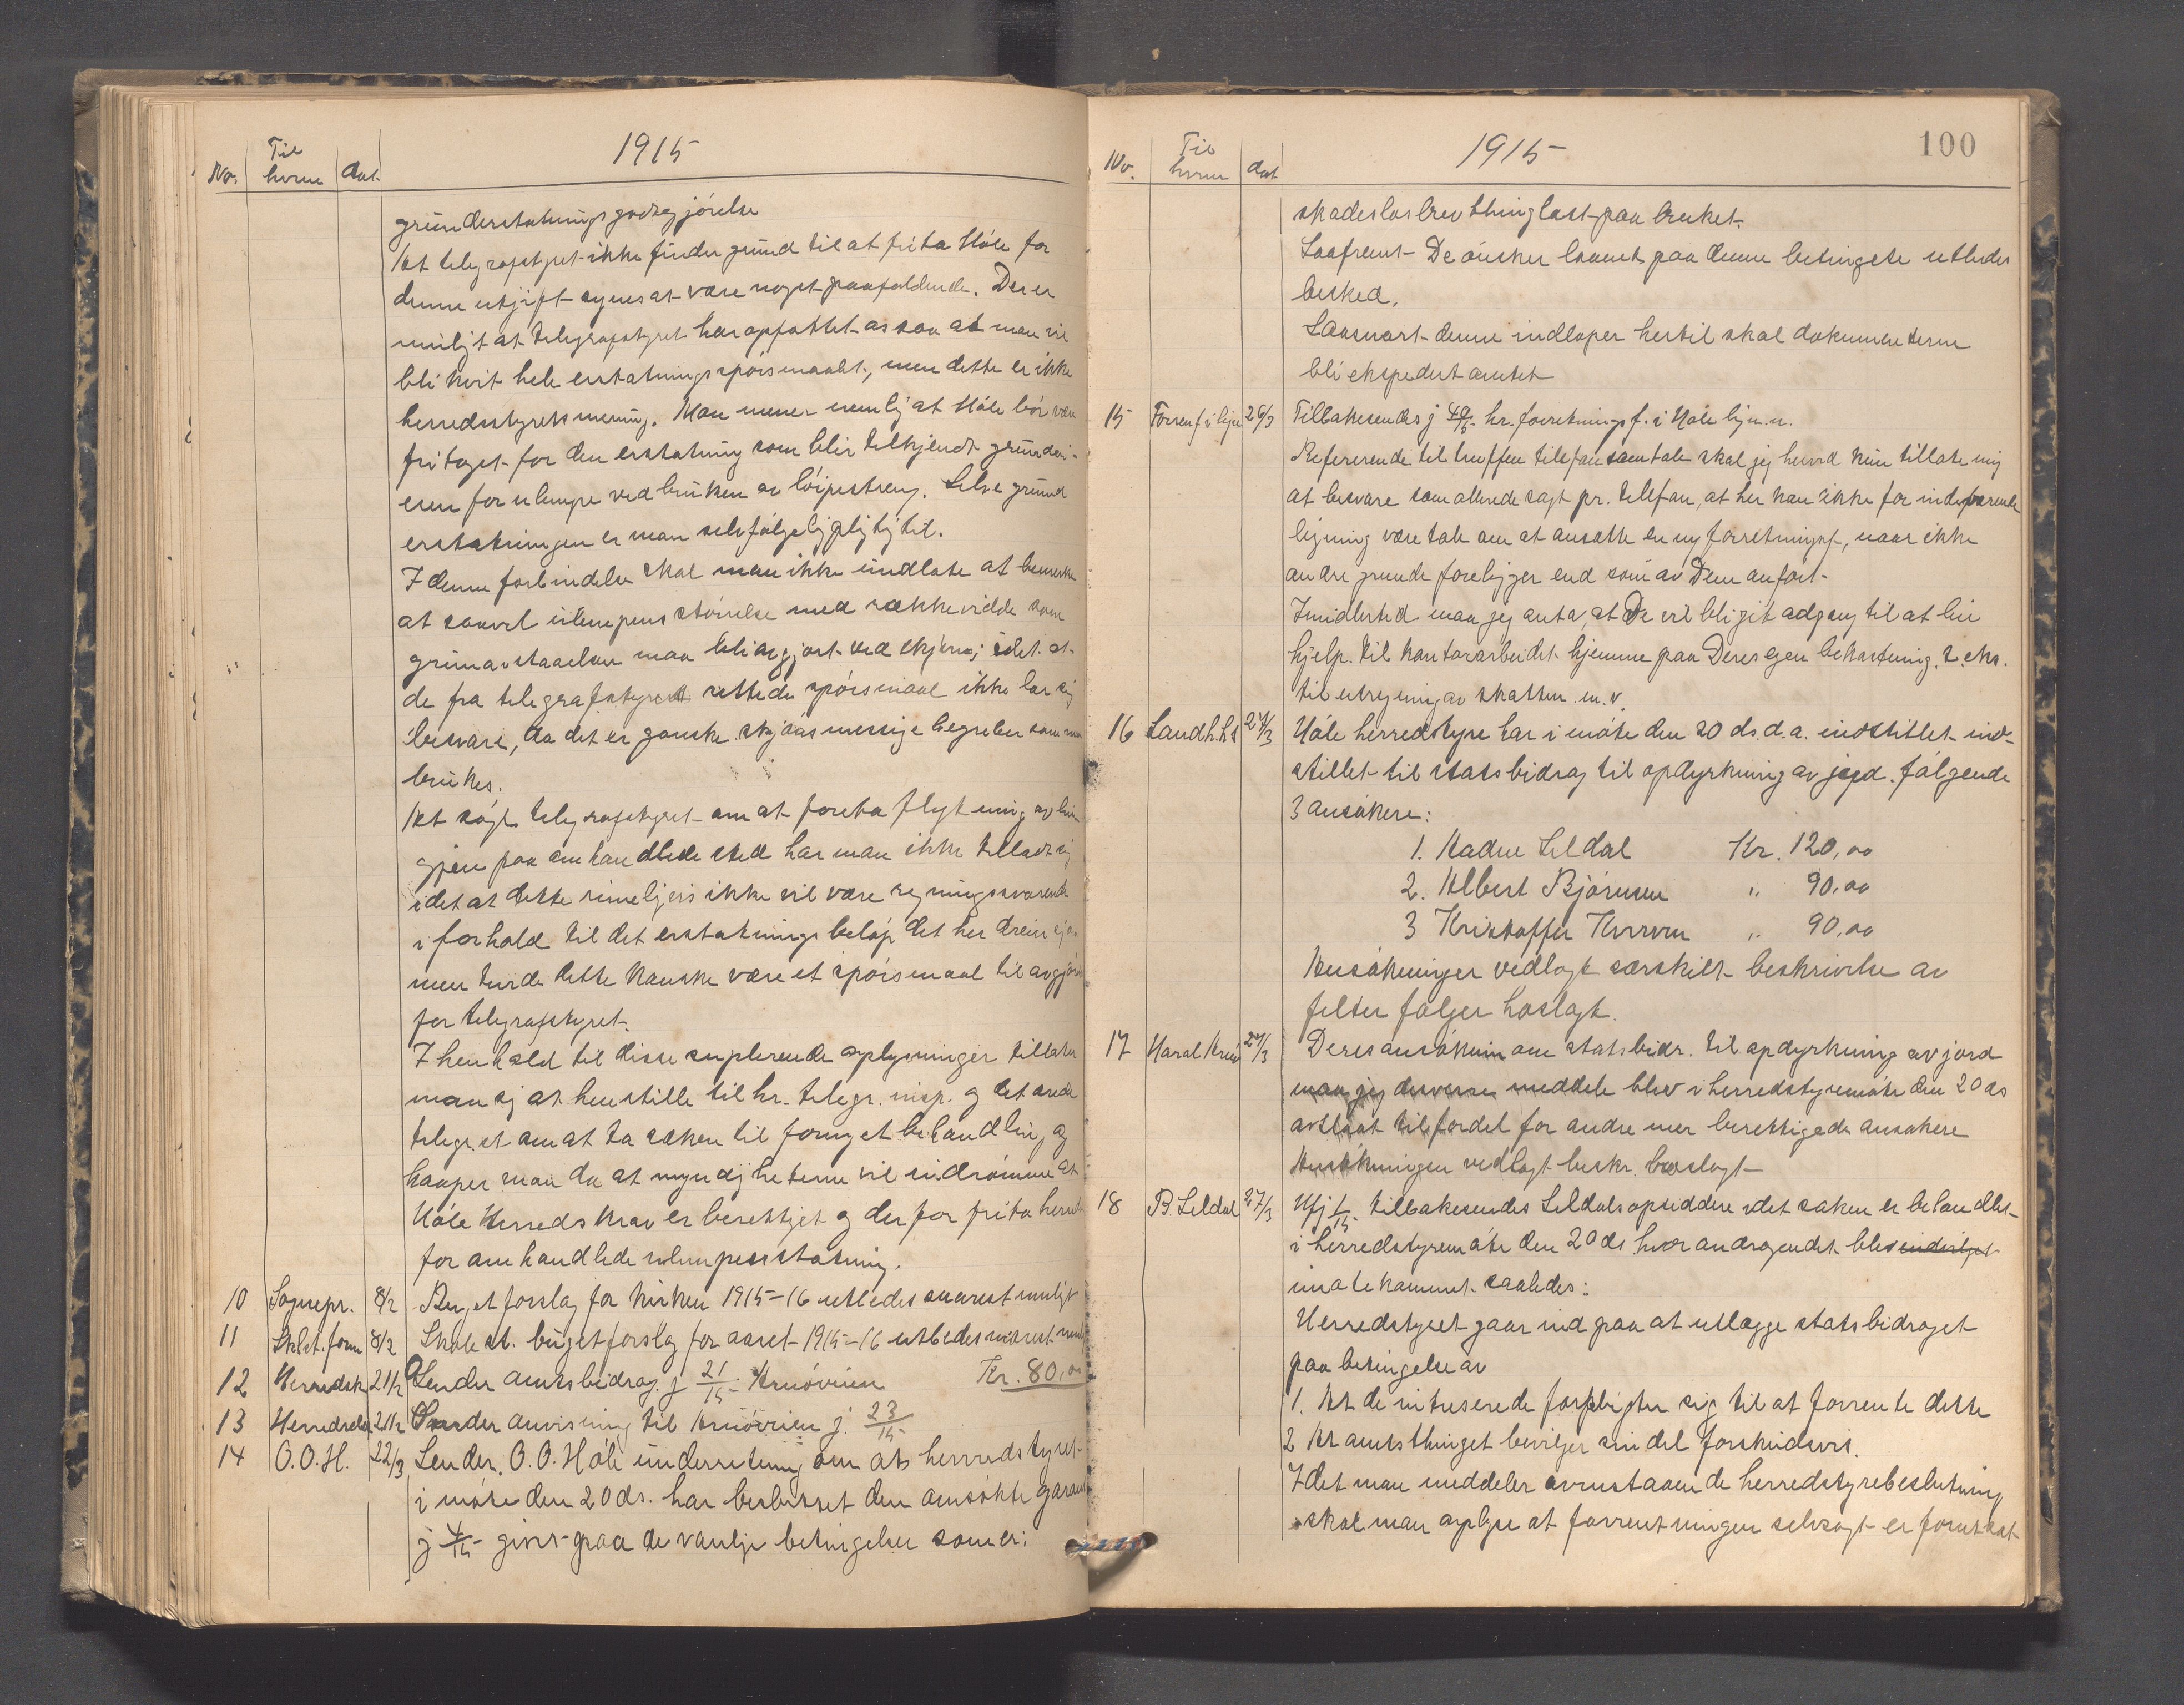 1915
No. Til hvem dat.
grunderstatningsgodtgjórelse
At telegrafstyret ikke finder grund til at frita Hóle for
denne utgift synes at være noget paafaldende. Der er
muligt at telegrafstyret har opfattet os saa at man vil
bli kvit hele erstatningsspórsmaalet, men dette er ikke
herredsstyrets mening. Man mener nemlig at Hóle bór være
fritaget for den erstatning som blir tilkjendt grundei-
eren for ulempe ved bruken av lóipestreng. Selve grund
erstatningen er man selvfólgelig pligtig til.
I denne forbindelse skal man ikke undlate at bemerke
at saavel ulempens stórrelse med rækkevidde som
grunavstaaelsen maa bli avgjort ved skjón; idet at
de fra telegrafstyret rettede spórsmaal ikke lar sig
besvare, da det er ganske skjónsmessige begreber som maa
brukes.
At sógt telegrafstyret om at foreta flytning av lin
gjen paa omhandlede sted har man ikke tilladt sig
idet at dette rimeligvis ikke vil være regningssvarende
i forhold til det erstatnings beløp det her dreier sig om
men turde dette kanske være et spórsmaal til avgjórelse
for telegrafstyret.
I henhold til disse suplerende oplysninger tillater
man sig at henstille til hr. telegr. insp. og det ærede
telegr.st om at ta saken til fornyet behandling og
haaper man da at myndighetene vil indrómme at
Hóle Herreds krav er berettiget og derfor frita herredet
for omhandlede ulempeerstatning.
10 Sognepr. 8/2 Buget forslag for kirken 1915-16 utbedes snarest muligt
11 Sklst. form 8/2 Skole st. bugetforslag for aaret 1915-16 utbedes snarest mulig
12 Herredsk 21/2 Sender amtsbidrag j 21/15 Knióveien Kr. 80,00
13 Herredsk 21/2 Sender anvisning til Knióveien j. 23/15
14 O.O.H. 22/3 Sender O.O. Hóle underretning om at herredsstyret
i móte den 20 ds. har besluttet den ansókte garanti
j 4/15 givet paa de vanlige betingelser som er:
100
1915
No. Til hvem dat
skadeslosbrev thinglæst paa bruket.
Saafremt De ónsker laanet paa denne betingelse utbedes
besked.
Saasnart denne indløper hertil skal dokumenterne
bli ekspedert amtet
15 Forrenf i lign 26/3 Tilbakesendes j 40/15 hr. forretningsf. i Hóle lign.n.
Refererende til truffen telefonsamtale skal jeg herved kun tillate mig
at besvare som allerede sagt pr. telefon, at her kan ikke for indeværende
ligning være tale om at ansætte en ny forretningsf, naar ikke
andre grunde foreligger end som av Dem anfórt.
Imidlertid maa jeg anta, at De vil bli git adgang til at leie
hjelp. til kontorarbeidet hjemme paa Deres egen bekostning, t. eks.
til utregning av skatten m.v.
16 Landh.h.s 27/3 Hóle herredstyre har i móte den 20 ds. d.a. indstillet ind-
stillet til statsbidrag til opdyrkning av jord. fólgende
3 ansókere:
1. Kadne Seldal Kr. 120,00
2. Albert Bjórnsen " 90,00
3 Kristoffer Kverven " 90,00
Ansókninger vedlagt særskilt beskrivelse av
felter fólger hoslagt.
17 Haral Kniev 27/3 Deres ansóknin om statsbidr. til opdyrkning av jord
maa jeg desverre meddele blev i herredstyremóte den 20 ds
avslaat til fordel for andre mer berettigede ansókere
Ansókningen vedlagt beskr. hoslagt
18 B. Seldal 27/3 Vfj 1/15 tilbakesendes Seldals opsiddere idet saken er behandlet
i herredstyremóte den 20 ds hvor andragendet blev indvilget
imótekommet saaledes:
Herredstyret gaar ind paa at utlægge statsbidraget
paa betingelse av
1. At de intreserede forpligter sig til at forrente dette
2 At amtsthinget bevilger sin del forskudsvis.
Idet man meddeler ovenstaaende herredstyrebeslutning
skal man oplyse at forrentningen selvsagt er forutsat